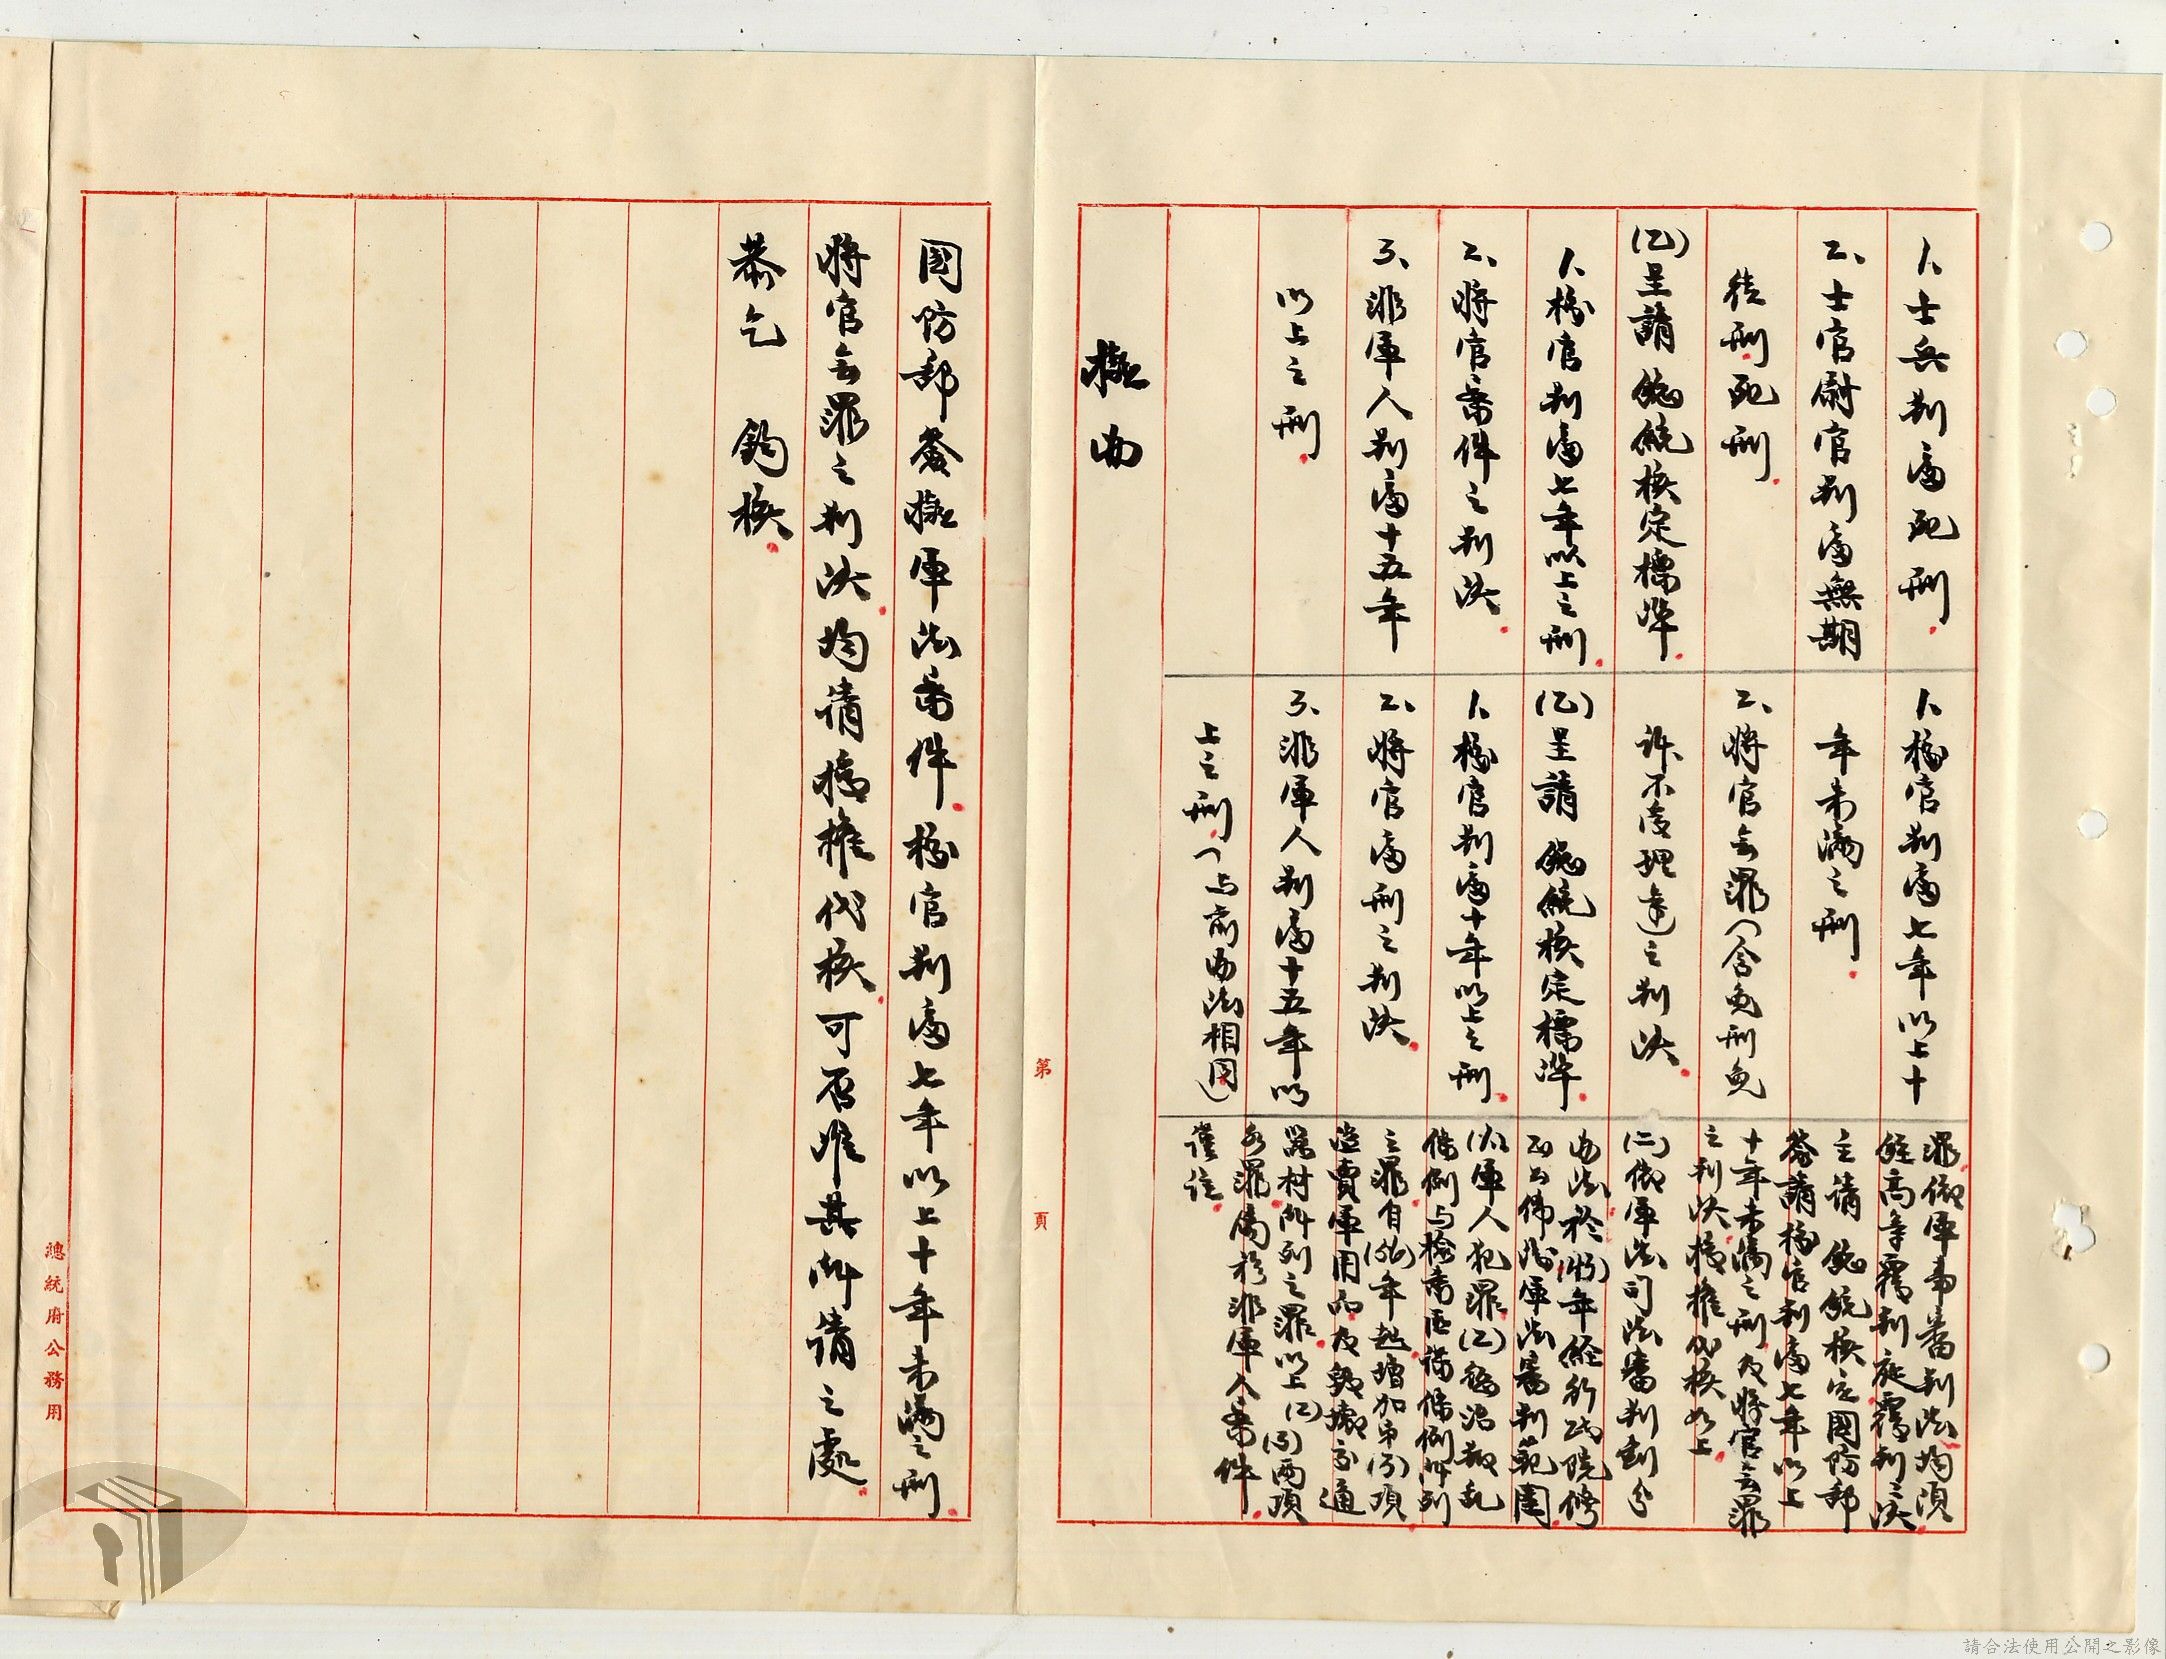 1、士兵判處死刑。
2、士官尉官判處無期
徒刑死刑。
(乙)呈請 總統核定標準。
1、校官判處七年以上之刑。
2、將官案件之判決。
3、非軍人判處十五年
以上之刑。
1、校官判處七年以上十
年未滿之刑。
2、將官無罪(含免刑免
訴不受理等)之判決。
(乙)呈請 總統核定標準。
1、校官判處十年以上之刑。
2、將官處刑之判決。
3、非軍人判處十五年以
上之刑。(與前辦法相同)
罪依軍事審判法均須
經高等覆判庭覆判之決
主請 總統核定國防部
簽請校官判處七年以上
十年未滿之刑。及將官無罪
之判決。授權代核如上
(二)依軍法司法審判劃分
辦法。於(43)年經行政院修
正公佈。軍法審判範圍
(1)軍人犯罪。(2)懲治叛亂
條例與檢肅匪諜條例所列
之罪。自(56)年起增加第(3)項
盜賣軍用品及竊盜交通
器材所列之罪。以上(2)(3)兩項
之罪屬於非軍人案件。
謹註。
擬辦
國防部簽擬軍法案件。校官判處七年以上十年未滿之刑。
將官無罪之判決。均請授權代核。可否准其所請之處。
恭乞 鈞核。
第 頁
總統府公務用
請合法使用公開之影像